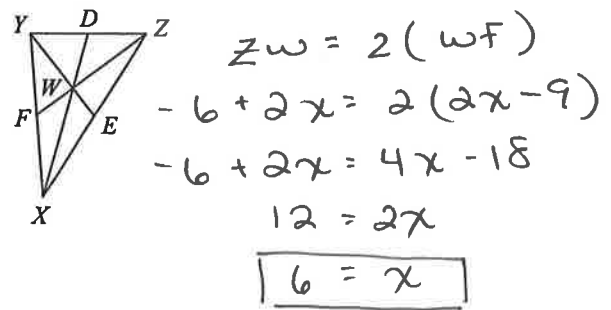 Y D Z
W
F E
X
ZW = 2(WF)
-6 + 2x = 2(2x-9)
-6 + 2x = 4x - 18
12 = 2x
6 = x